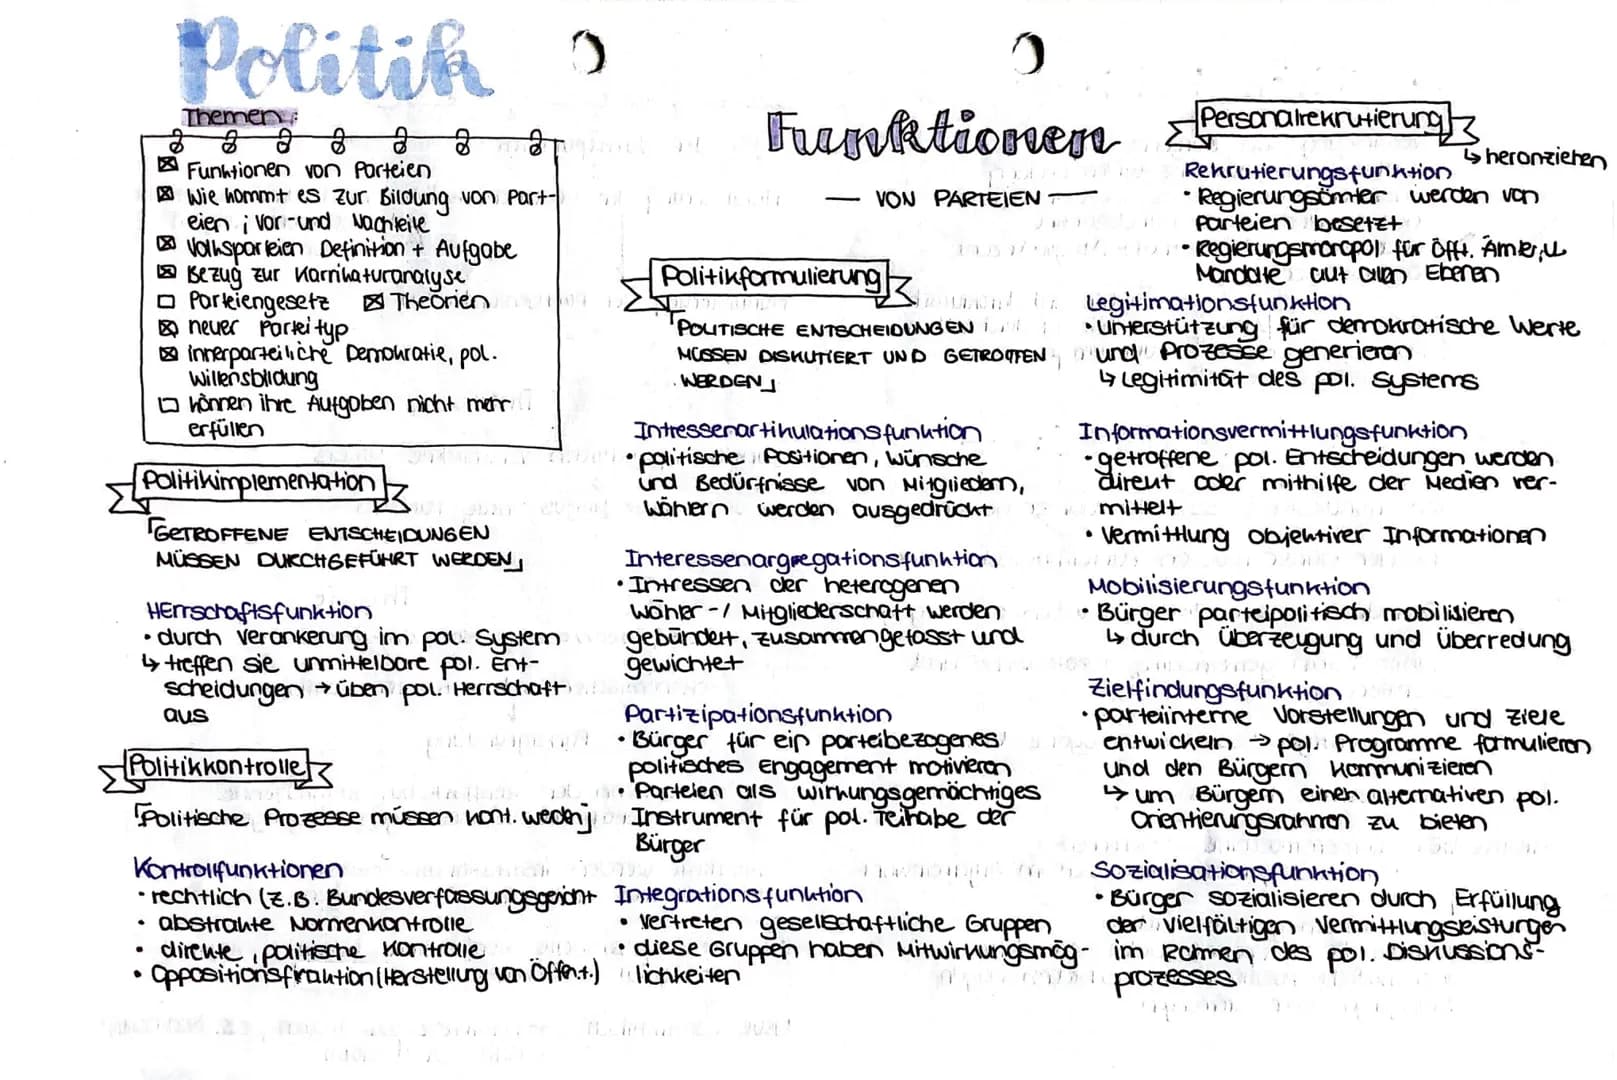 Politik
Themen:
☒ Funktionen von Parteien
☒ Wie kommt es zur Bildung von Part-
eien ; Vor- und Nachteile
☒ Volksparteien Definition + Aufgabe
☒ Bezug zur Karrikaturanalyse
☐ Parteiengesetz ☒ Theorien
☒ neuer Parteityp
☒ innerparteiliche Demokratie, pol.
Willensbildung
☐ können ihre Aufgaben nicht mehr
erfüllen
Politikimplementation
「GETROFFENE ENTSCHEIDUNGEN
MÜSSEN DURCHGEFÜHRT WERDEN」
Herrschaftsfunktion
• durch Verankerung im pol. System
↳ treffen sie unmittelbare pol. Ent-
scheidungen → üben pol. Herrschaft
aus
Politikkontrolle
「Politische Prozesse müssen kont. weden」
Kontrollfunktionen
• rechtlich (z.B. Bundesverfassungsgericht
• abstrakte Normenkontrolle
• direkte, politische Kontrolle
• Oppositionsfraktion (Herstellung von Öffent.)
Funktionen
— VON PARTEIEN —
Politikformulierung
「POLITISCHE ENTSCHEIDUNGEN
MÜSSEN DISKUTIERT UND GETROFFEN
WERDEN」
Intressenartikulationsfunktion
• politische Positionen, Wünsche
und Bedürfnisse von Mitgliedern,
Wählern werden ausgedrückt
Interessenargregationsfunktion
• Intressen der heterogenen
Wähler-/ Mitgliederschaft werden
gebündelt, zusammengefasst und
gewichtet
Partizipationsfunktion
• Bürger für ein parteibezogenes
politisches Engagement motivieren
• Parteien als wirkungsgemächtiges
Instrument für pol. Teihabe der
Bürger
Integrationsfunktion
• Vertreten gesellschaftliche Gruppen
• diese Gruppen haben Mitwirkungsmög-
lichkeiten
Personalrekrutierung
↳ heranziehen
Rekrutierungsfunktion
• Regierungsämter werden von
Parteien besetzt
• Regierungsmonopol für öff. Ämter, u
Mandate auf allen Ebenen
Legitimationsfunktion
• Unterstützung für demokratische Werte
und Prozesse generieren
↳ Legitimität des pol. Systems
Informationsvermittlungsfunktion
• getroffene pol. Entscheidungen werden
direkt oder mithilfe der Medien ver-
mittelt
• Vermittlung objektiver Informationen
Mobilisierungsfunktion
• Bürger parteipolitisch mobilisieren
↳ durch Überzeugung und Überredung
Zielfindungsfunktion
• parteiinterne Vorstellungen und Ziele
entwickeln → pol. Programme formulieren
und den Bürgern kommunizieren
↳ um Bürgern einen alternativen pol.
Orientierungsrahmen zu bieten
Sozialisationsfunktion
• Bürger sozialisieren durch Erfüllung
der vielfältigen Vermittlungsleistungen
im Rahmen des pol. Diskussions-
prozesses